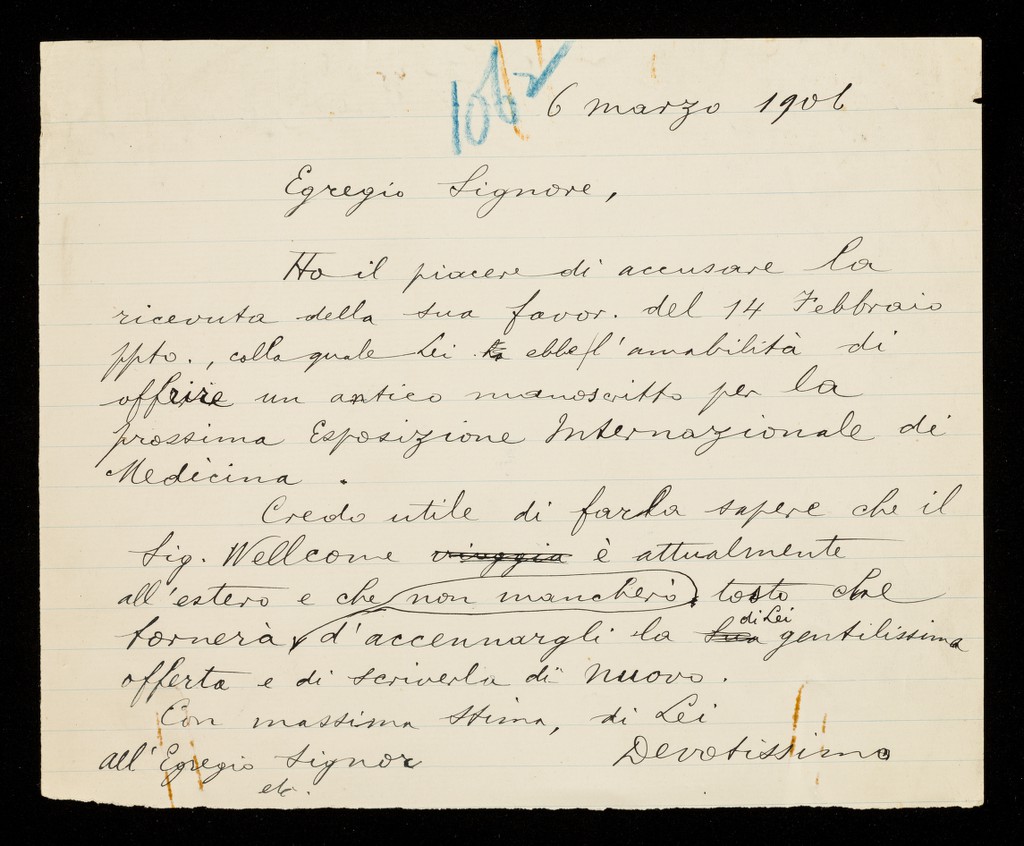 1062
6 marzo 1906
Egregio Signore,
Ho il piacere di accusare la
ricevuta della sua favor. del 14 Febbraio
ppto., colla quale Lei ebbe l'amabilità di
offrire un antico manoscritto per la
prossima Esposizione Internazionale di
Medicina.
Credo utile di farla sapere che il
Sig. Wellcome viaggia è attualmente
all'estero e che non mancherò, tosto che
di Lei
tornerà, d'accennargli la Sua gentilissima
offerta e di scriverla di nuovo.
Con massima stima, di Lei
all'Egregio Signor Devotissimo
etc.